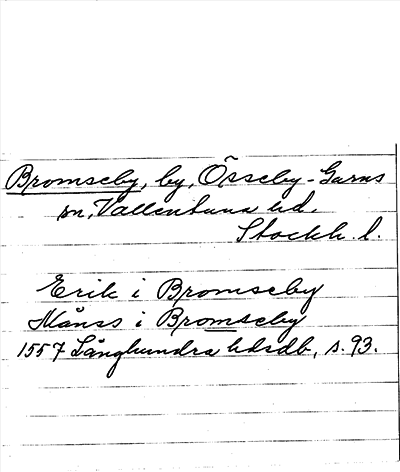 Bromseby, by, Össeby-Garns
sn, Vallentuna hd.
Stockh. l.
Erik i Bromseby
Månss i Bromseby
1557 Långhundra hdsdb, s. 93.